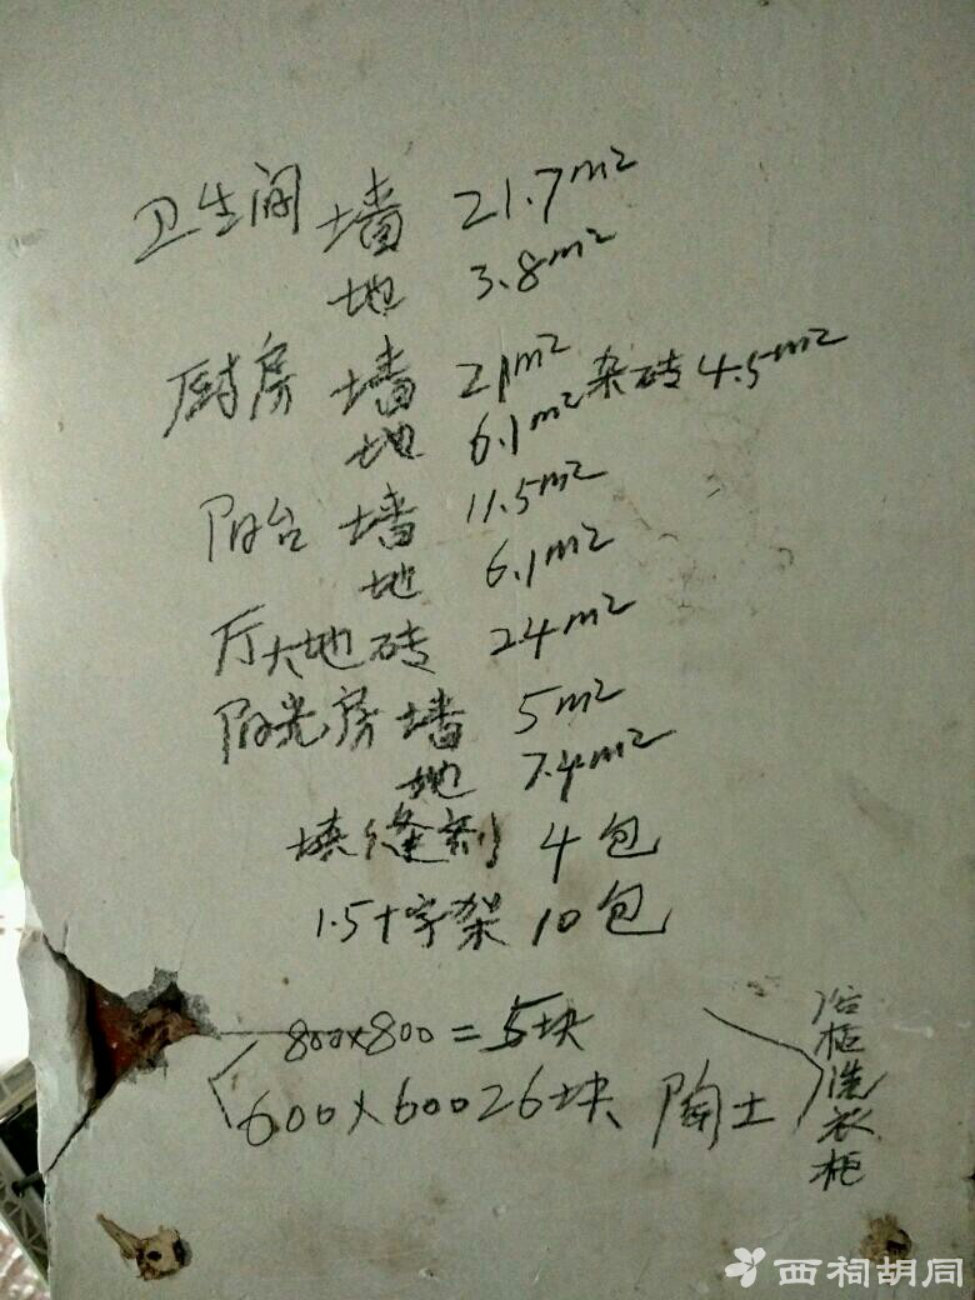 卫生间 墙 21.7m²
地 3.8m²
厨房 墙 21m²
地 6.1m² 杂砖 4.5m²
阳台 墙 11.5m²
地 6.1m²
厅大地砖 24m²
阳光房 墙 5m²
地 7.4m²
填缝剂 4包
1.5十字架 10包
800×800=5块
600×600 26块 陶土
浴柜洗衣柜
西祠胡同